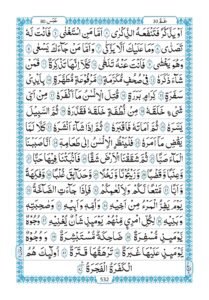 عَبَسَ 80 عَمَّ 30
اَوْ يَذَّكَّرُ فَتَنْفَعَهُ الذِّكْرٰى اَمَّا مَنِ اسْتَغْنٰى فَاَنْتَ لَهٗ
تَصَدّٰى وَمَا عَلَيْكَ اَلَّا يَزَّكّٰى وَاَمَّا مَنْ جَآءَكَ يَسْعٰى
وَهُوَ يَخْشٰى فَاَنْتَ عَنْهُ تَلَهّٰى كَلَّآ اِنَّهَا تَذْكِرَةٌ فَمَنْ
شَآءَ ذَكَرَهٗ فِيْ صُحُفٍ مُّكَرَّمَةٍ مَّرْفُوْعَةٍ مُّطَهَّرَةٍ بِاَيْدِيْ
سَفَرَةٍ كِرَامٍ بَرَرَةٍ قُتِلَ الْاِنْسٰنُ مَآ اَكْفَرَهٗ مِنْ اَيِّ
شَيْءٍ خَلَقَهٗ مِنْ نُّطْفَةٍ خَلَقَهٗ فَقَدَّرَهٗ ثُمَّ السَّبِيْلَ
يَسَّرَهٗ ثُمَّ اَمَاتَهٗ فَاَقْبَرَهٗ ثُمَّ اِذَا شَآءَ اَنْشَرَهٗ كَلَّا لَمَّا
يَقْضِ مَآ اَمَرَهٗ فَلْيَنْظُرِ الْاِنْسٰنُ اِلٰى طَعَامِهٖ اَنَّا صَبَبْنَا
الْمَآءَ صَبًّا ثُمَّ شَقَقْنَا الْاَرْضَ شَقًّا فَاَنْۢبَتْنَا فِيْهَا حَبًّا
وَّعِنَبًا وَّقَضْبًا وَّزَيْتُوْنًا وَّنَخْلًا وَّحَدَآئِقَ غُلْبًا وَّفَاكِهَةً
وَّاَبًّا مَّتَاعًا لَّكُمْ وَلِاَنْعَامِكُمْ فَاِذَا جَآءَتِ الصَّآخَّةُ
يَوْمَ يَفِرُّ الْمَرْءُ مِنْ اَخِيْهِ وَاُمِّهٖ وَاَبِيْهِ وَصَاحِبَتِهٖ
وَبَنِيْهِ لِكُلِّ امْرِئٍ مِّنْهُمْ يَوْمَئِذٍ شَاْنٌ يُّغْنِيْهِ وُجُوْهٌ
يَّوْمَئِذٍ مُّسْفِرَةٌ ضَاحِكَةٌ مُّسْتَبْشِرَةٌ وَوُجُوْهٌ
يَّوْمَئِذٍ عَلَيْهَا غَبَرَةٌ تَرْهَقُهَا قَتَرَةٌ اُولٰٓئِكَ هُمُ
الْكَفَرَةُ الْفَجَرَةُ
532